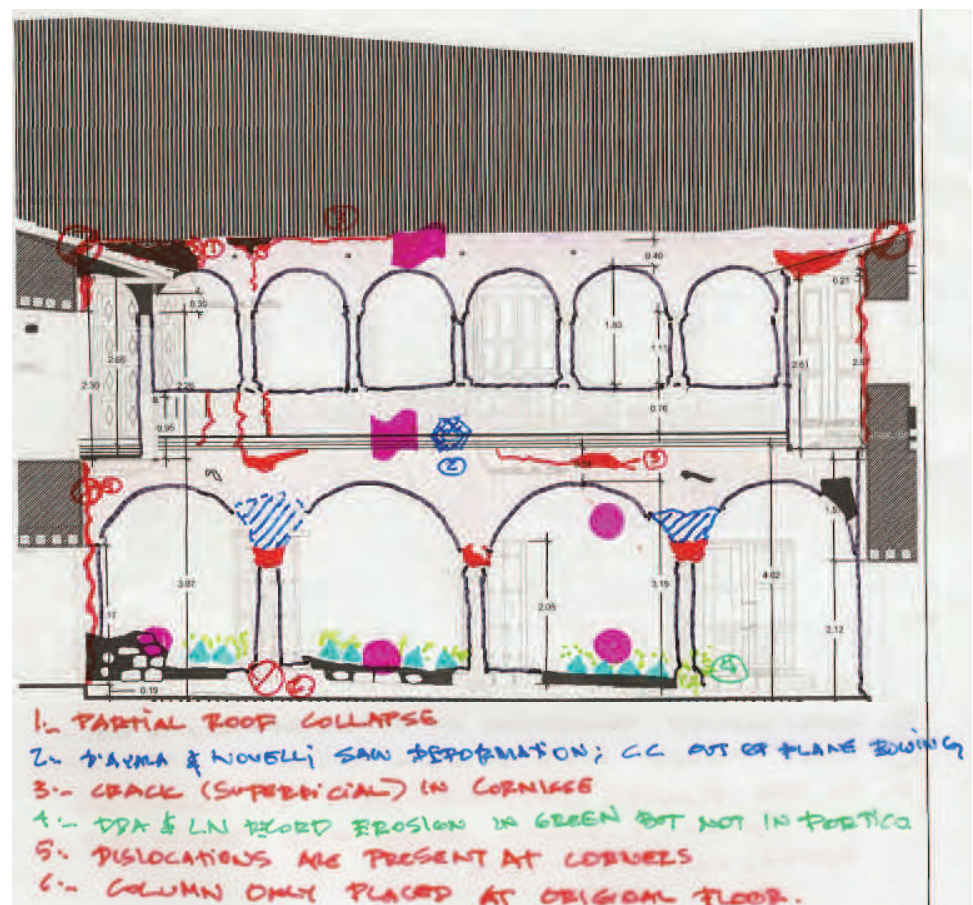 3
1
0.40
0.21
0.30
1.83
1.11
2.66
2.30
2.26
2.61
2.67
0.95
0.76
2
3
5
3.87
3.19
4.02
2.05
2.12
17
0.19
6
4
1.- PARTIAL ROOF COLLAPSE
2.- D'AYALA & NOVELLI SAW DEFORMATION; C.C OUT OF PLANE BOWING
3.- CRACK (SUPERFICIAL) IN CORNISSE
4.- DDA & LN RECORD EROSION IN GREEN BUT NOT IN PORTICO
5.- DISLOCATIONS ARE PRESENT AT CORNERS
6.- COLUMN ONLY PLACED AT ORIGINAL FLOOR.